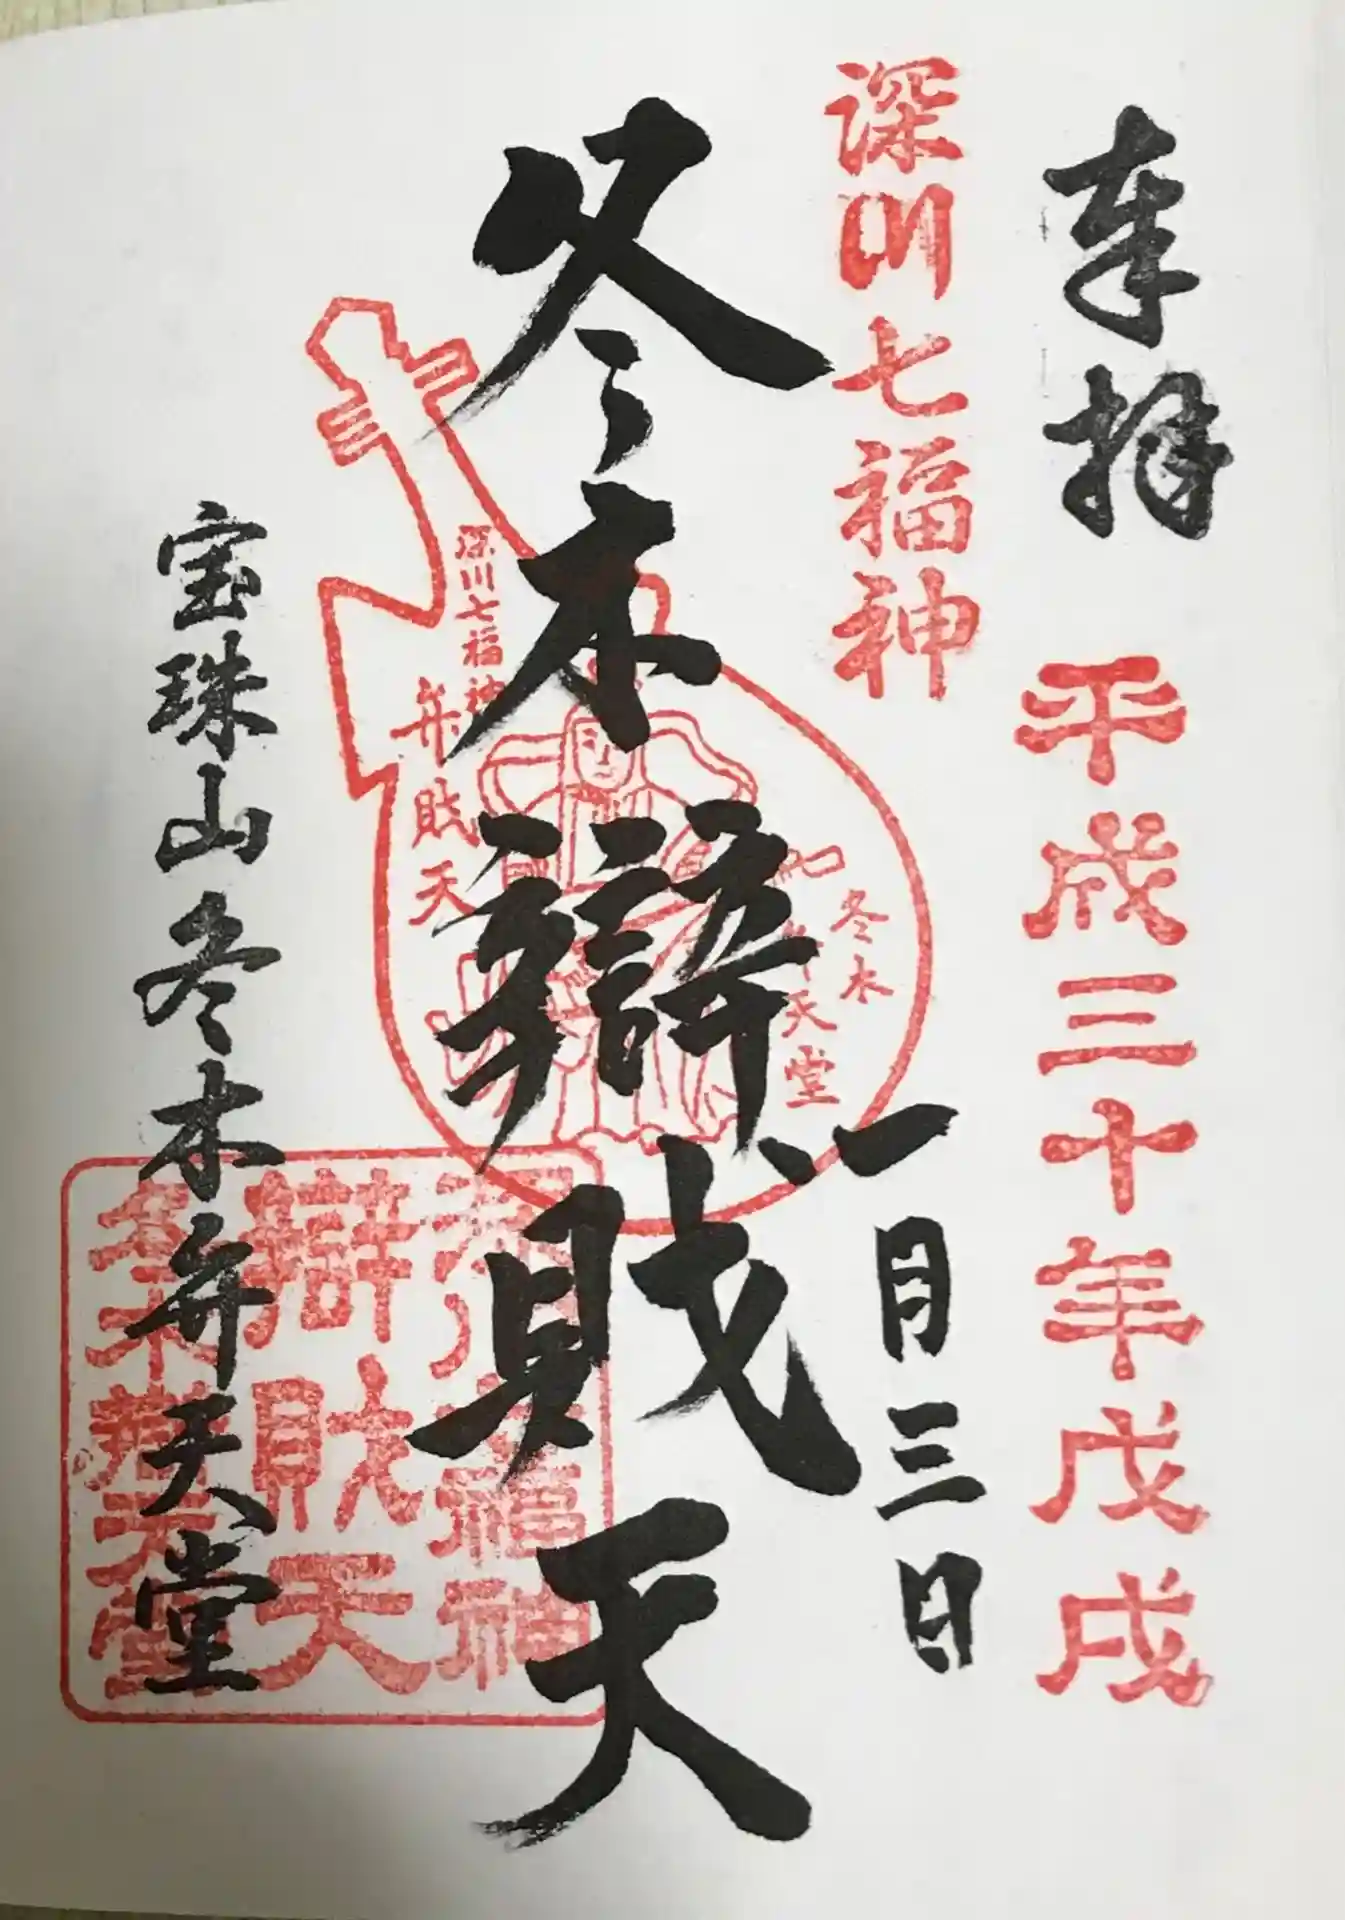 奉拝
平成三十年戊戌
深川七福神
一月三日
冬木辯財天
深川七福神
弁財天
冬木
弁天堂
宝珠山冬木弁天堂
深川七福神
辯財天
冬木辯天堂